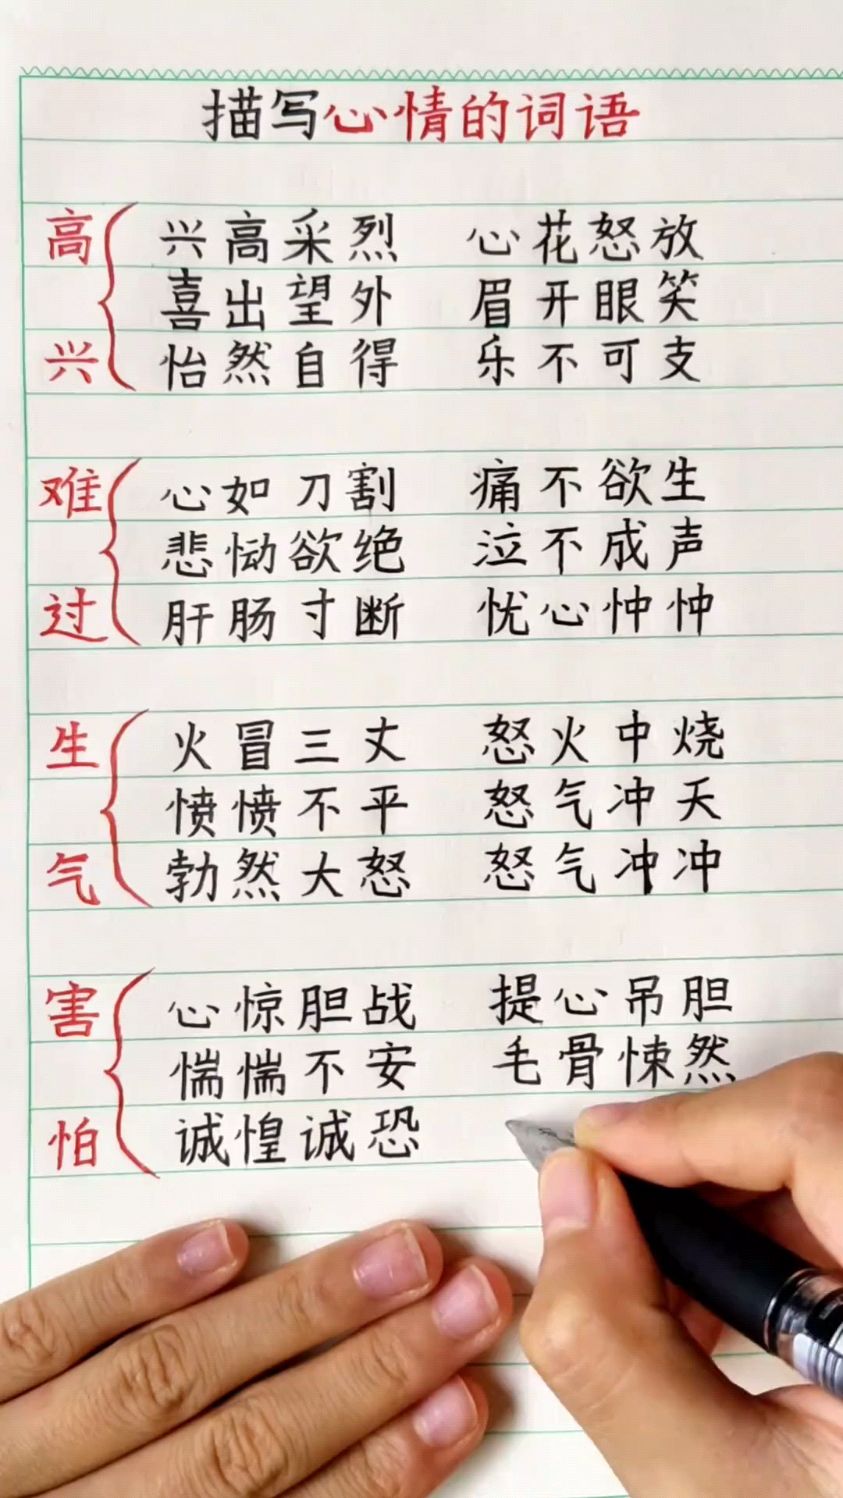 描写心情的词语
高兴
兴高采烈 心花怒放
喜出望外 眉开眼笑
怡然自得 乐不可支
难过
心如刀割 痛不欲生
悲恸欲绝 泣不成声
肝肠寸断 忧心忡忡
生气
火冒三丈 怒火中烧
愤愤不平 怒气冲天
勃然大怒 怒气冲冲
害怕
心惊胆战 提心吊胆
惴惴不安 毛骨悚然
诚惶诚恐